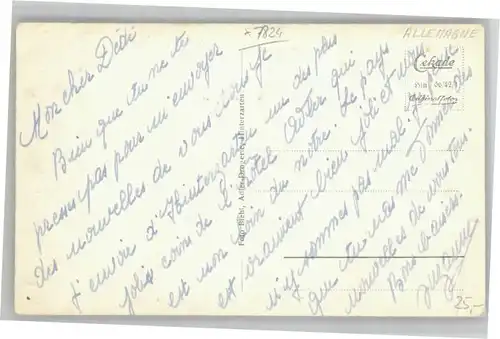 x 7824
ALLEMAGNE
Mon cher Dédé
Bien que tu ne te
presses pas pour m'envoyer
des nouvelles de vous tous je
t'envoie d'Hinterzarten un des plus
jolis coins de l'hotel Adler qui
est non loin du notre. Le pays
est vraiment bien joli et nous
n'y sommes pas mal. J'espère
que tu vas me donner des
nouvelles de vous tous.
Bons baisers
Suzanne
Foto Biehl, Adler-Drogerie, Hinterzarten
25,-